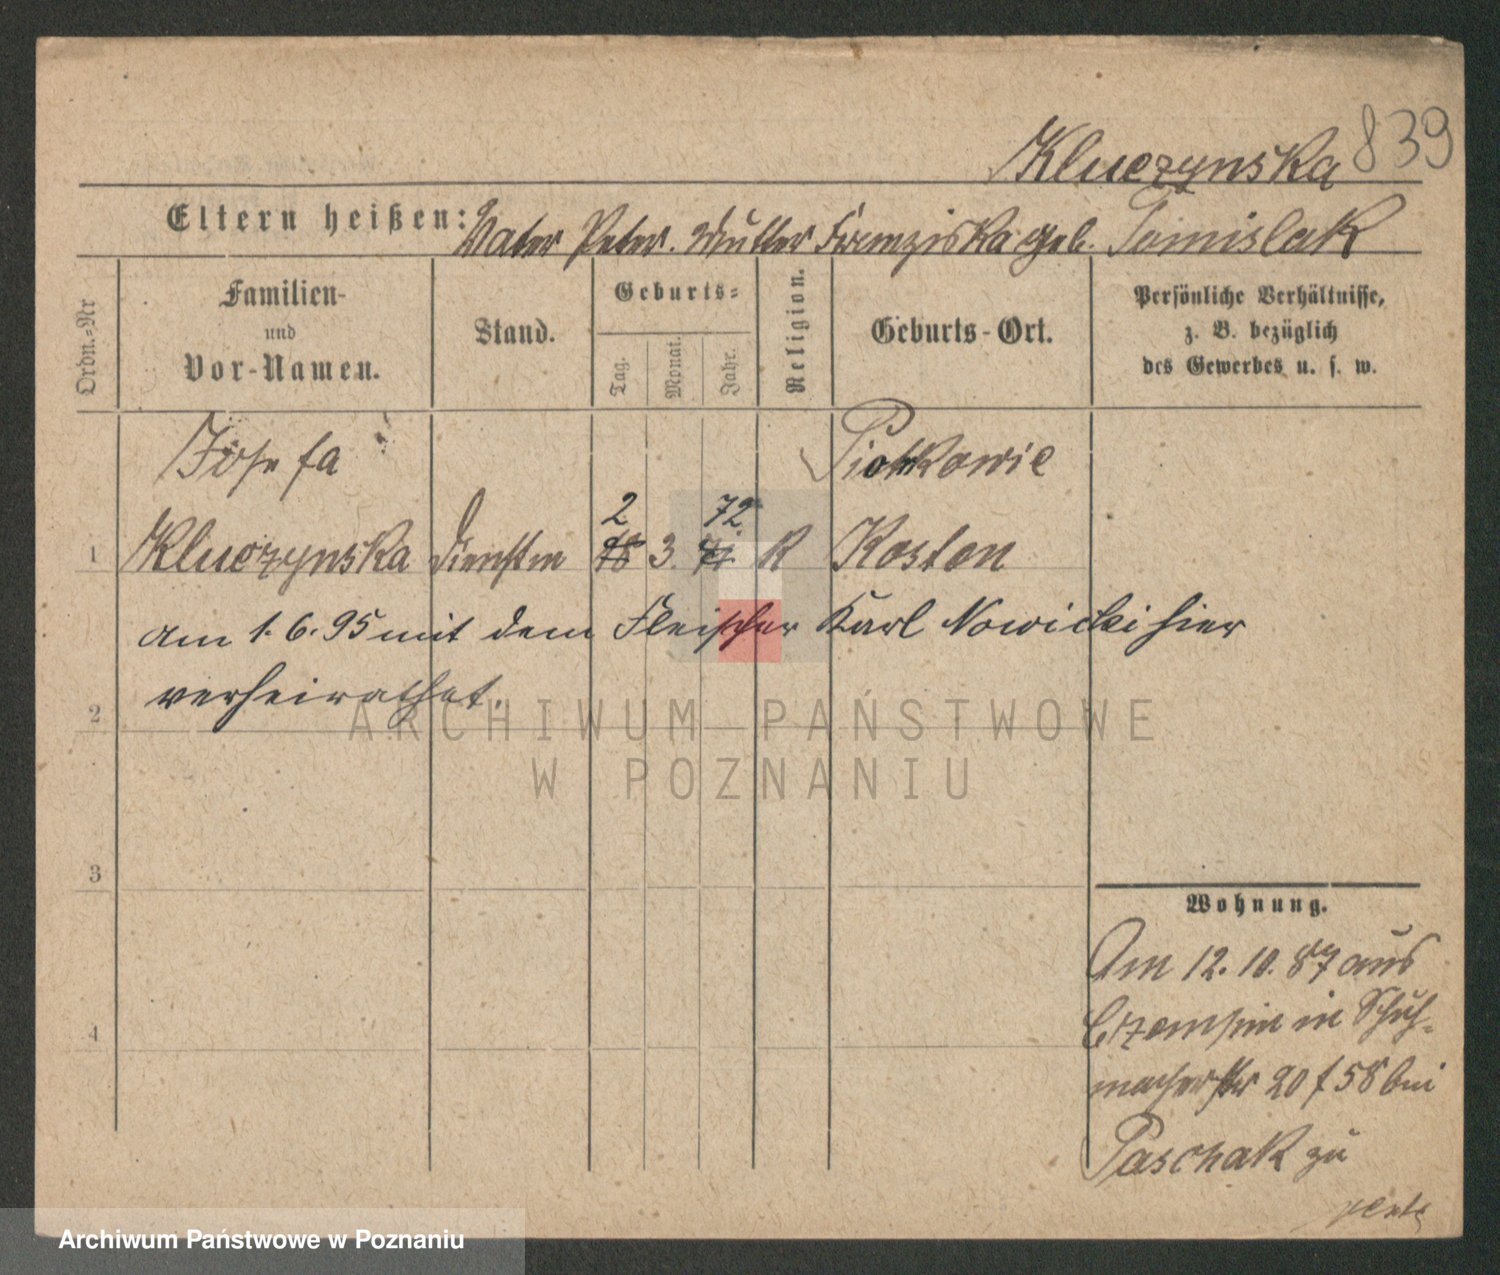 839
Kluczynska
Eltern heißen: Vater Peter. Mutter Franziska geb. Tomislak
Ordn.-Nr
Familien-
und
Vor-Namen.
Stand.
Geburts-
Tag.
Monat.
Jahr.
Religion.
Geburts-Ort.
Persönliche Verhältnisse,
z. B. bezüglich
des Gewerbes u. s. w.
Josefa Piotrkowic
2 72
1 Kluczynska Dienstm 18 3. 71 K Kosten
am 1. 6. 95 mit dem Fleischer Karl Nowicki hier
verheirathet.
2
3
4
Wohnung.
Am 12. 10. 87 aus
in Schuh-
macherstr 20 f 58 bei
Paschak zu
ARCHIWUM PAŃSTWOWE
W POZNANIU
Archiwum Państwowe w Poznaniu